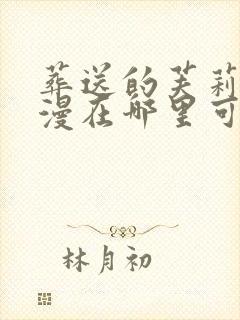 葬送的芙莉
漫在哪里可
林月初